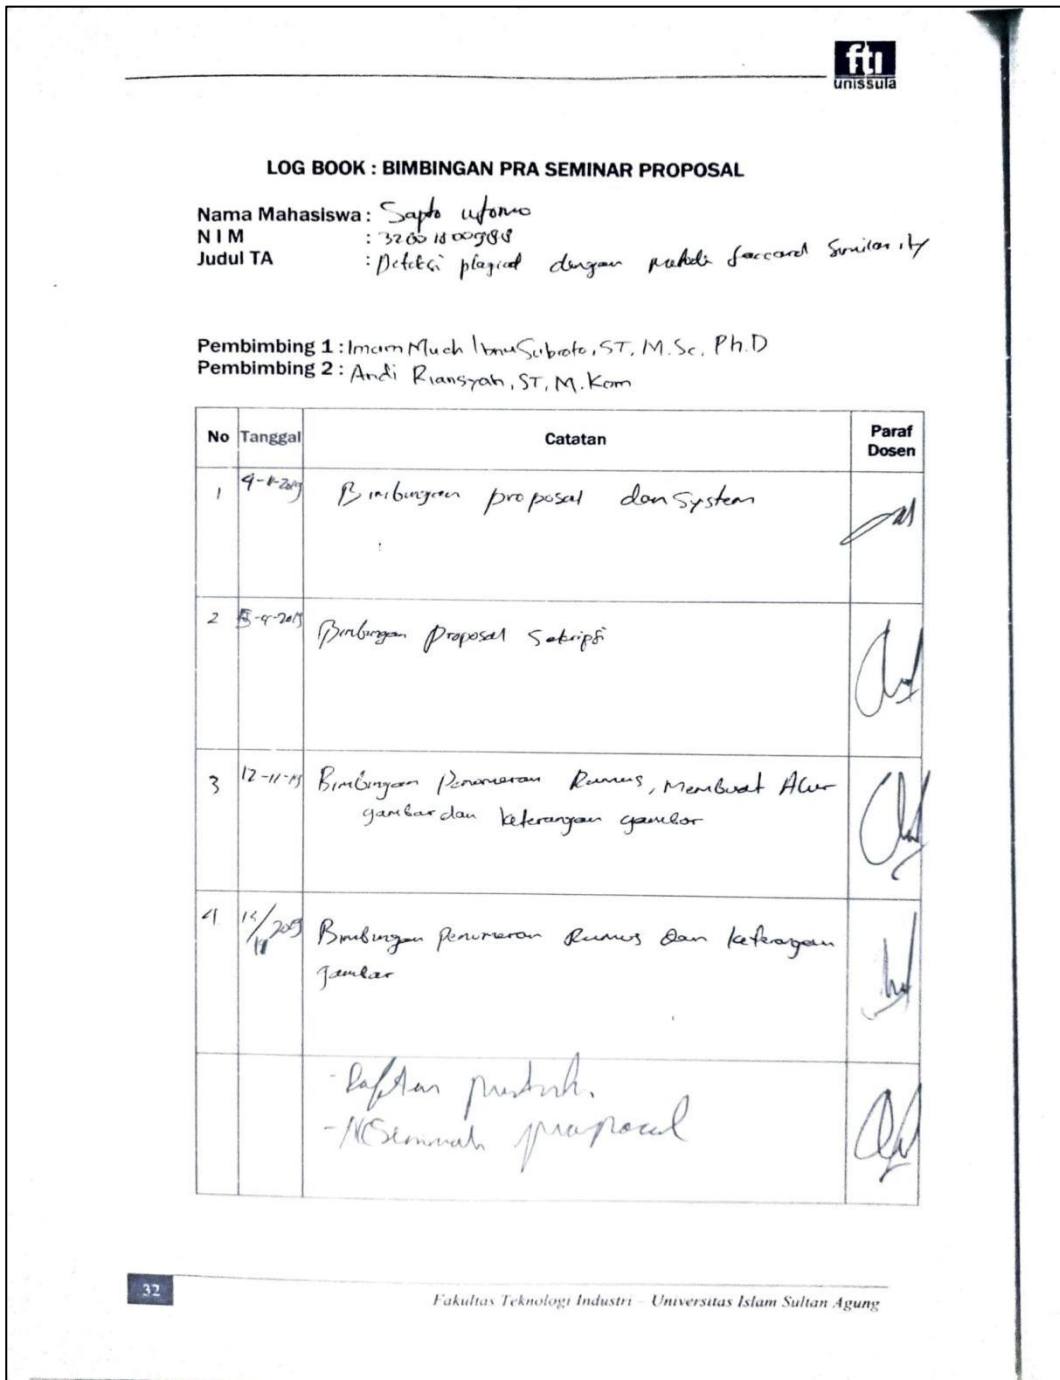 fti
unissula
LOG BOOK : BIMBINGAN PRA SEMINAR PROPOSAL
Nama Mahasiswa : Sapto utomo
NIM :
Judul TA : Deteksi plagiat dengan metode Jaccard Similarity
Pembimbing 1 : Imam Much Ibnu Subroto, ST, M.Sc, Ph.D
Pembimbing 2 : Andi Riansyah, ST, M.Kom
No Tanggal Catatan Paraf Dosen
1 Bimbingan proposal dan System
2 Bimbingan Proposal Sekripsi
3 12-11-19 Bimbingan Penomeran Rumus, Membuat Alur
gambar dan keterangan gambar
4 Bimbingan penomeran Rumus Dan keterangan
gambar
- Daftar pustak.
- proposal
32
Fakultas Teknologi Industri - Universitas Islam Sultan Agung